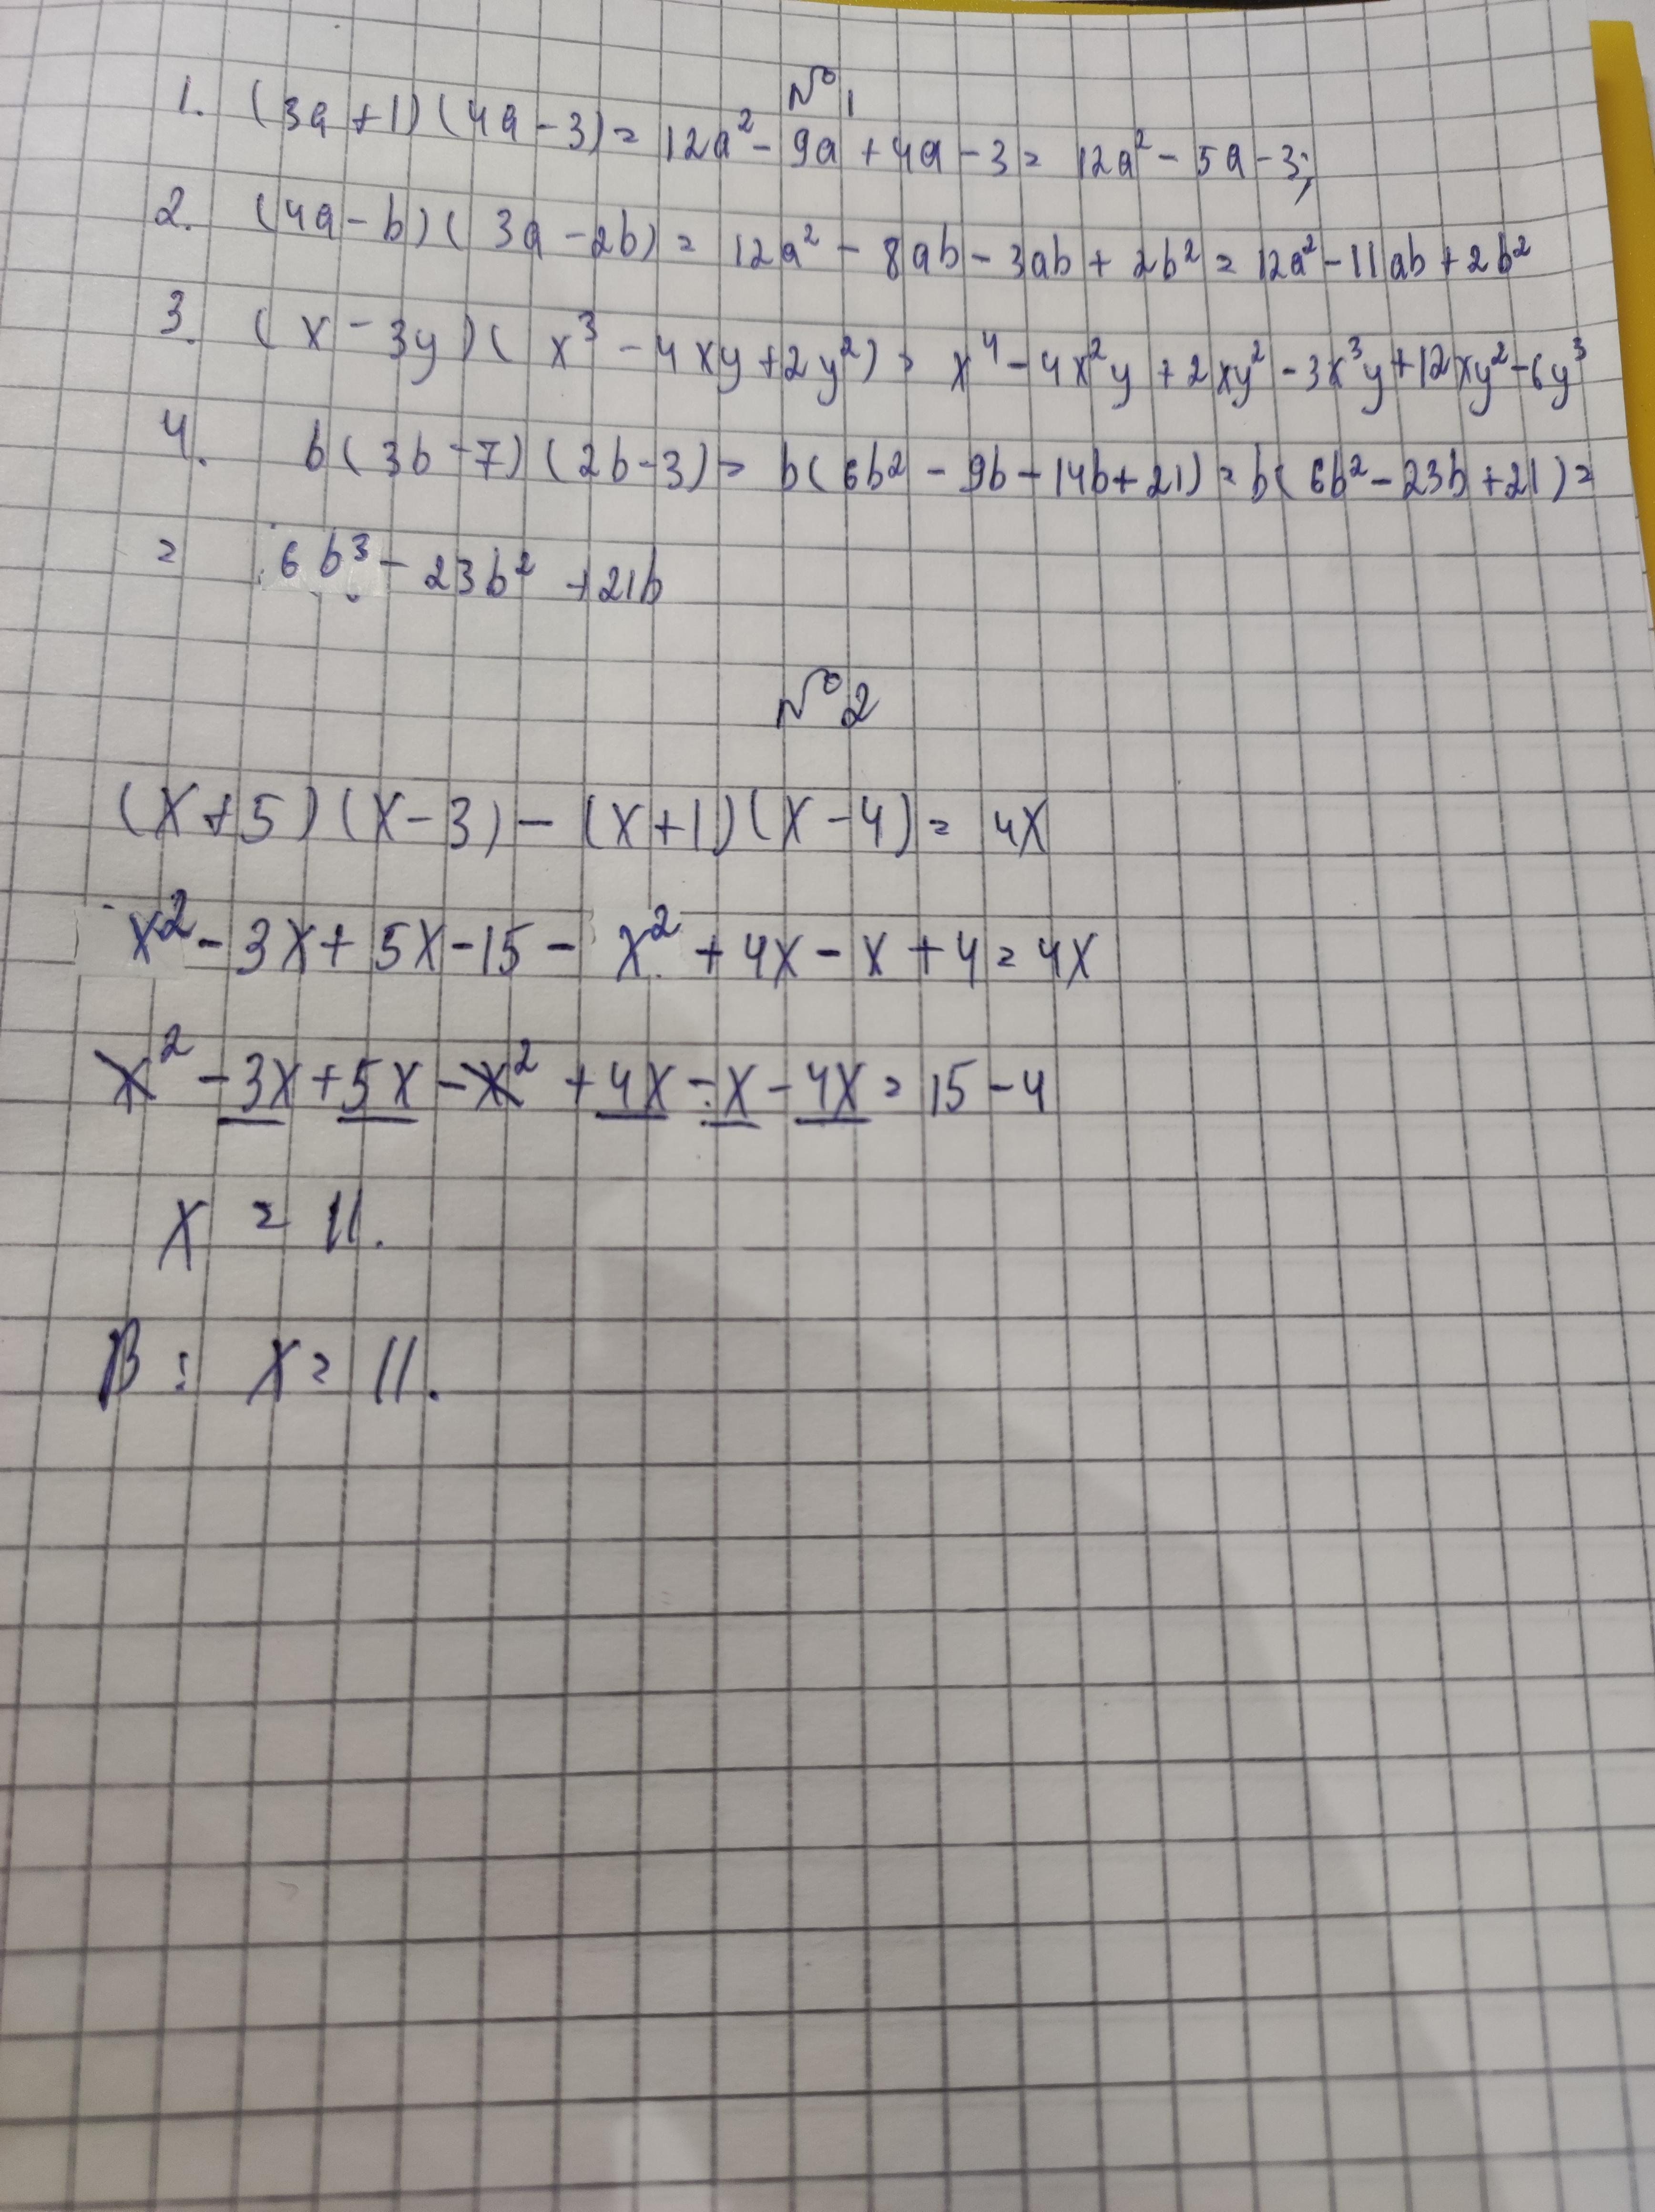 №1
1. (3a+1)(4a-3)= 12a²-9a+4a-3= 12a²-5a-3;
2. (4a-b)(3a-2b)= 12a²-8ab-3ab+2b²= 12a²-11ab+2b²
3. (x-3y)(x³-4xy+2y²)= x⁴-4x²y+2xy²-3x³y+12xy²-6y³
4. b(3b-7)(2b-3)= b(6b²-9b-14b+21)= b(6b²-23b+21)=
= 6b³-23b²+21b
№2
(x+5)(x-3)-(x+1)(x-4)= 4x
x²-3x+5x-15-x²+4x-x+4=4x
x²-3x+5x-x²+4x-x-4x=15-4
x = 11.
В: x= 11.